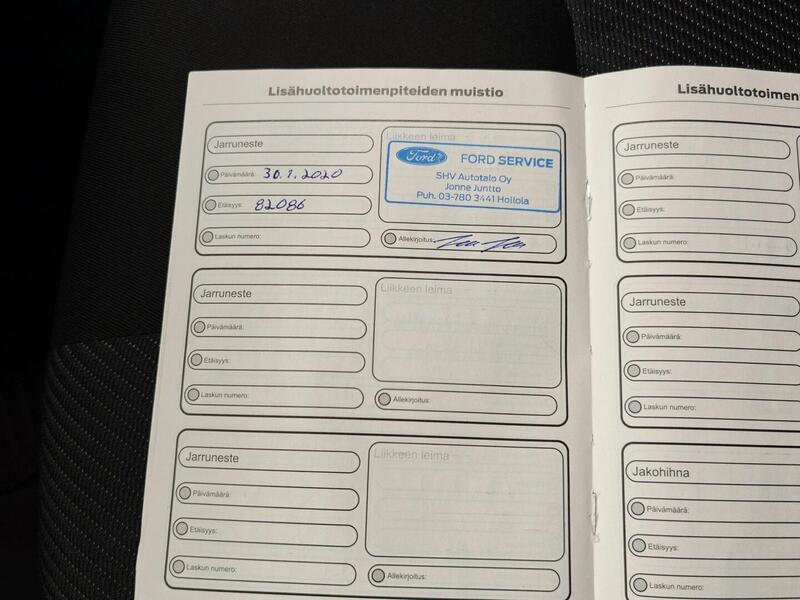 Lisähuoltotoimenpiteiden muistio
Jarruneste
Päivämäärä: 30.1.2020
Etäisyys: 82086
Laskun numero:
Liikkeen leima:
Ford
FORD SERVICE
SHV Autotalo Oy
Jonne Juntto
Puh. 03-780 3441 Hollola
Allekirjoitus:
Jarruneste
Päivämäärä:
Etäisyys:
Laskun numero:
Liikkeen leima
Allekirjoitus:
Jarruneste
Päivämäärä:
Etäisyys:
Laskun numero:
Liikkeen leima
Allekirjoitus:
Lisähuoltotoimen
Jarruneste
Päivämäärä:
Etäisyys:
Laskun numero:
Jarruneste
Päivämäärä:
Etäisyys:
Laskun numero:
Jakohihna
Päivämäärä:
Etäisyys:
Laskun numero: